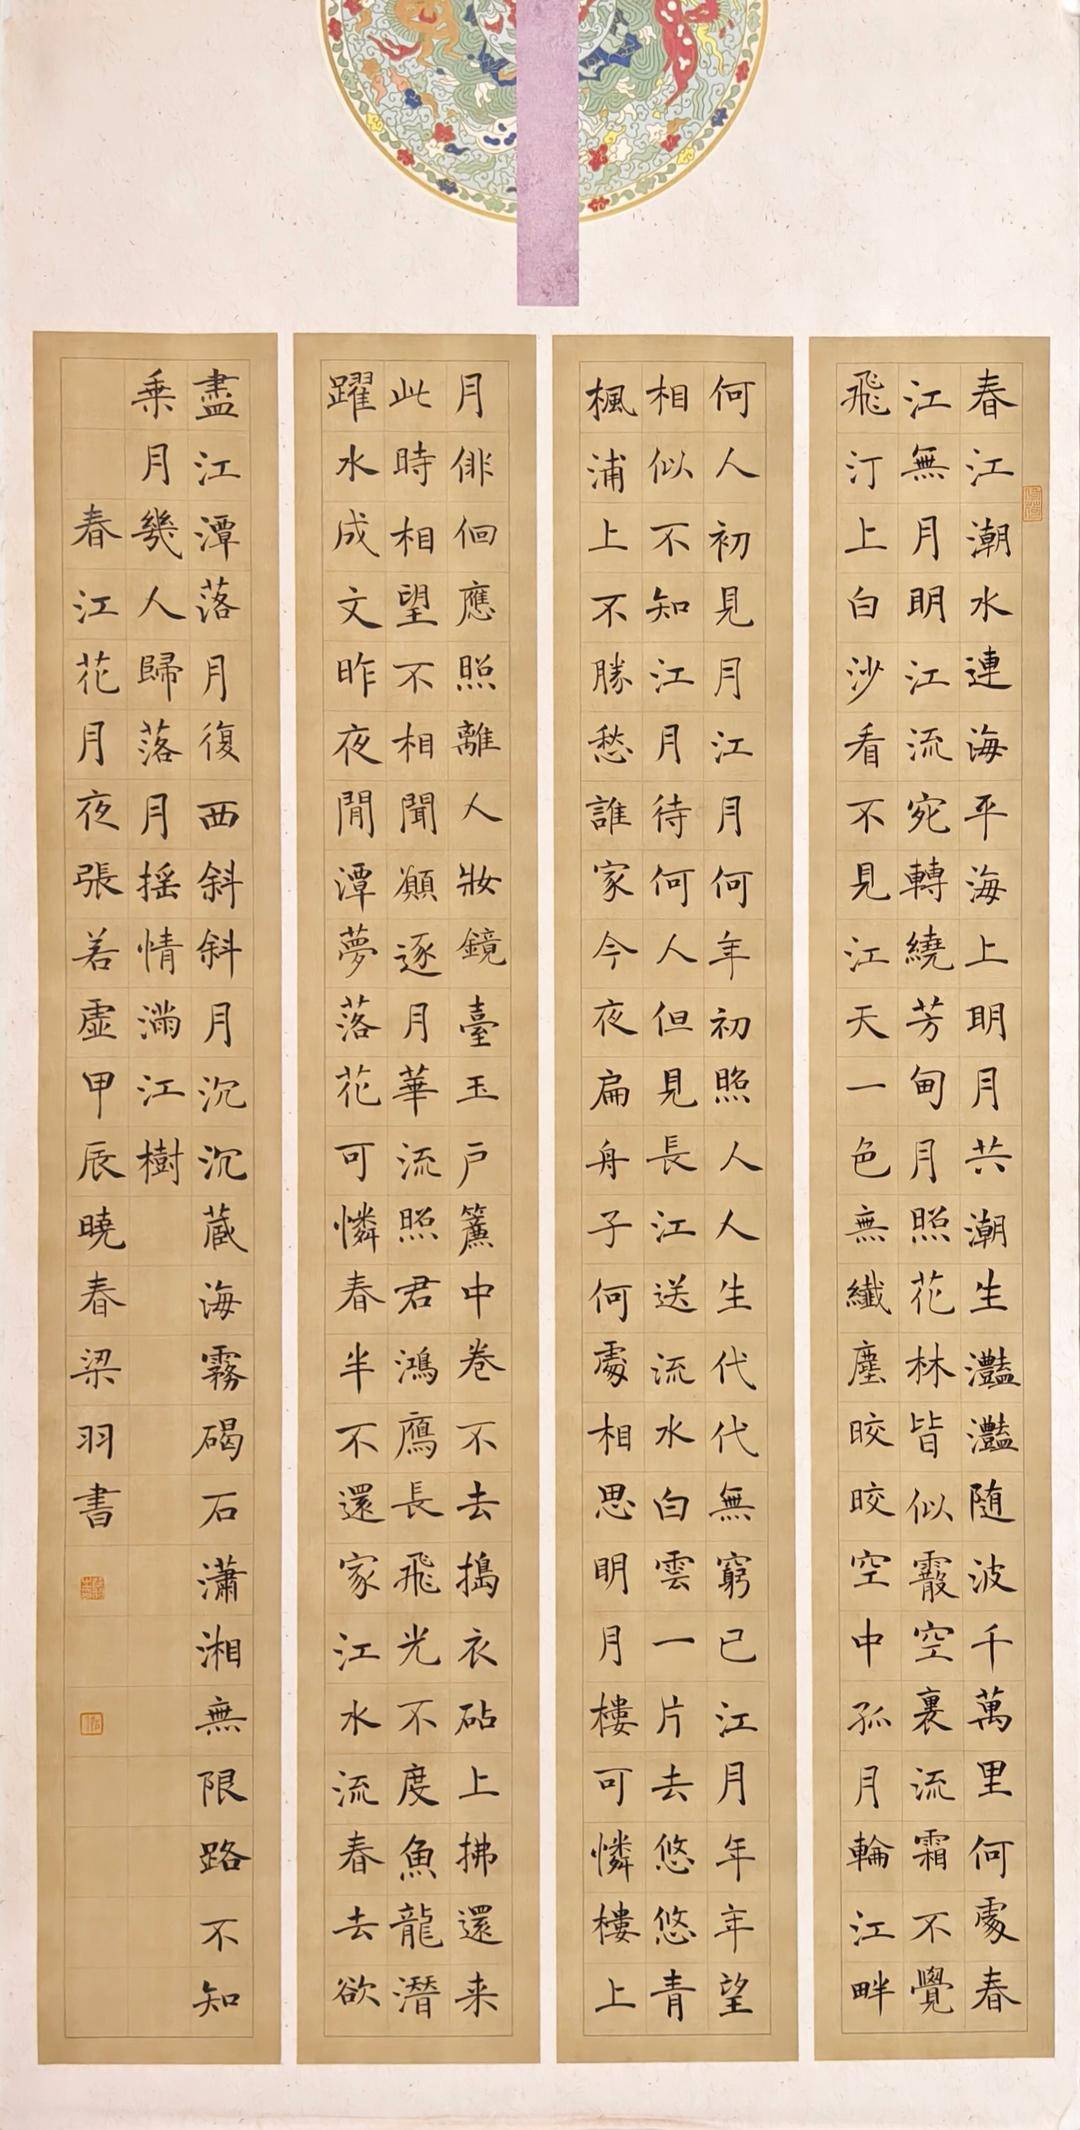 春江潮水連海平海上明月共潮生灩灩随波千萬里何處春
江無月明江流宛轉繞芳甸月照花林皆似霰空裏流霜不覺
飛汀上白沙看不見江天一色無纖塵晈晈空中孤月輪江畔
何人初見月江月何年初照人人生代代無窮已江月年年望
相似不知江月待何人但見長江送流水白雲一片去悠悠青
楓浦上不勝愁誰家今夜扁舟子何處相思明月樓可憐樓上
月俳佪應照離人妝鏡臺玉戶簾中卷不去搗衣砧上拂還来
此時相望不相聞願逐月華流照君鴻鴈長飛光不度魚龍潛
躍水成文昨夜閒潭夢落花可憐春半不還家江水流春去欲
盡江潭落月復西斜斜月沉沉藏海霧碣石瀟湘無限路不知
乗月幾人歸落月揺情滿江樹
春江花月夜張若虛甲辰曉春梁羽書